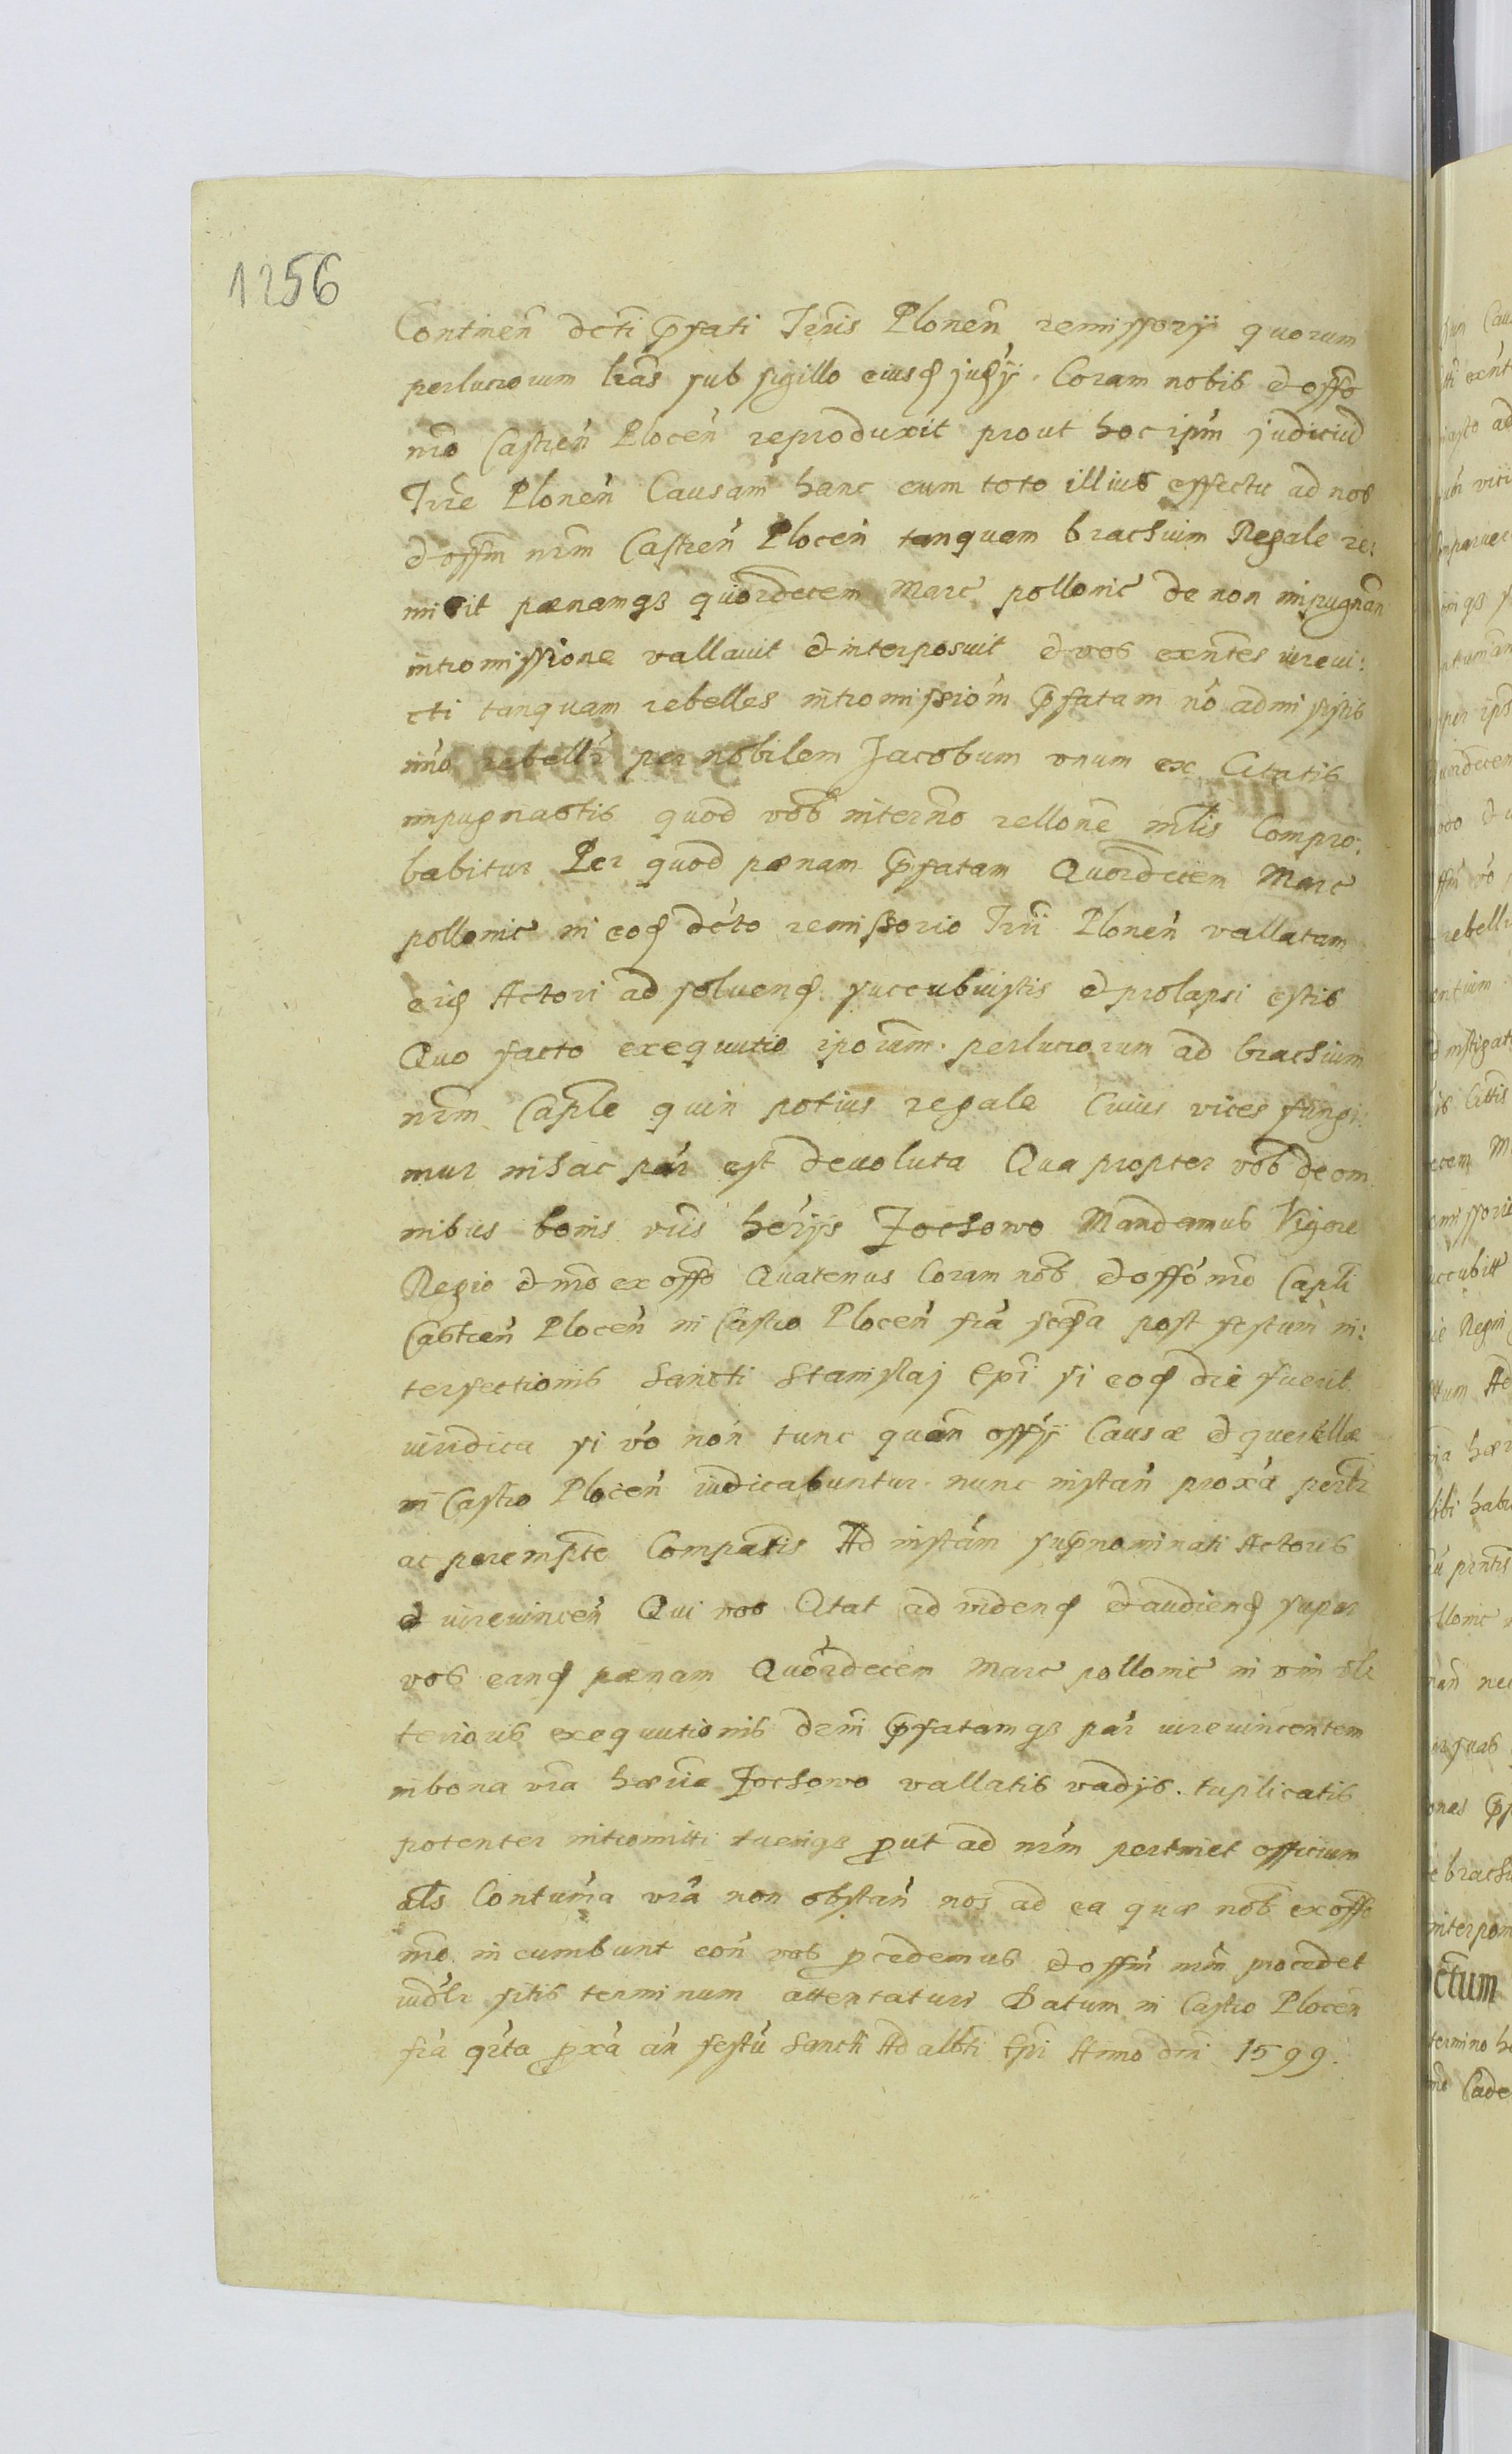 1256
Continen̄ dcti p̄fati Trris Plonen̄ remissorij quorum
perlucrorum lr̄as sub sigillo eiusd judȳ. Coram nobis et offo
nr̄o Castren̄ Plocen̄ reproduxit prout hoc ipm̄ judiciū
Trre Plonen̄ Causam hanc cum toto illius effectu ad nos
et offm̄ nrm̄ Castren̄ Plocen̄ tanquam brachium Regale re:
misit pænamqz quordecem Marc pollonic de non impugnan̄
intromissione vallavit et interposuit et vos exn̄tes iurevi:
cti tanquam rebelles intromissiom̄ p̄fatam nō admisistis
imo rebellr̄ per nobilem Jacobum vnum ex Citatis
impugnastis quod vob̄ in termn̄o rellone mlis Compro:
babitur Per quod pænam p̄fatam Quordecem Marc
pollonic in eod dc̄to remissorio Trrii Plonen̄ vallatam
eid Actori ad soluend succubuistis et prolapsi estis
Quo facto exequutio ipor̄um perlucrorum ad brachium
nrm̄ Caplē quin potius regale Cuius vices fungi:
mur in hac par̄ est devoluta Qua propter vob̄ de om
nibus bonis vr̄is herijs Jochowo Mandamus Vigore
Regio et nr̄o ex offo Quatenus Coram nob̄ et offō nr̄o Capli
Castren̄ Plocen̄ in Castro Plocen̄ fr̄ia secd̄a post festum in:
terfectionis Sancti Stanislaj Ep̄i si eod die fuerit
iuridica si vō non tunc quān offij Causæ et querellæ
in Castro Plocen̄ iudicabuntur nunc instan̄ proxā pertr̄
ac perempte Compatis Ad instām supnominati Actoris
et iurevincen̄ Qui vos Citat ad videnḍ et audienḍ super
vos eanḍ pænam Quordecem Marc pollonic in vim vl
terioris exequutionis decrni p̄fatamqz par̄ iurevincentem
in bona vr̄a hærria Jochowo vallatis vadijs tuplicatis
potenter intromitti tueriqz p̱ut ad nrm̄ pertinet officium
als Contumā vrā non obstan̄ nos ad ea quæ nob̄ ex offo
nr̄o incumbunt con̄ vos p̱cedemus et offm̄ nrm̄ procedet
iudlr sitis terminum attentaturi Datum in Castro Plocen̄
fr̄ia qr̄ta p̱xā an̄ festū Sancti Adalbti Epi Anno dni 1599.